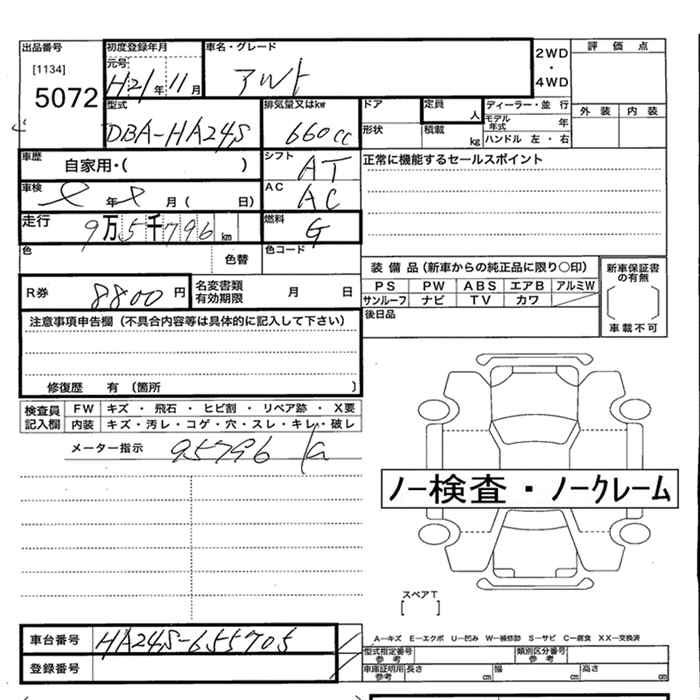 出品番号
[1134]
5072
初度登録年月
元号
H21年 11月
車名・グレード
アルト
2WD
・
4WD
評 価 点
外 装 内 装
型式
DBA-HA24S
排気量又はkw
660cc
ドア
形状
定員
人
積載
kg
ディーラー・並 行
モデル年式 年
ハンドル 左・右
車歴
自家用・( )
シフト
AT
正常に機能するセールスポイント
車検
年 月( 日)
AC
AC
走行
9万5千796km
燃料
G
色
色替
色コード
R券
8800 円
名変書類
有効期限
月 日
装 備 品(新車からの純正品に限り〇印)
PS PW ABS エアB アルミW
サンルーフ ナビ TV カワ
新車保証書
の有無
車載不可
後日品
注意事項申告欄(不具合内容等は具体的に記入して下さい)
修復歴 有(箇所 )
検査員
記入欄
FW キズ・飛石・ヒビ割・リペア跡・X要
内装 キズ・汚レ・コゲ・穴・スレ・キレ・破レ
メーター指示
95796
ノー検査・ノークレーム
スペアT
[ ]
車台番号
HA24S-655705
登録番号
A―キズ E―エクボ U―凹み W―補修跡 S―サビ C―腐食 XX―交換済
型式指定番号
参考
類別区分番号
参考
車庫証明用
参考
長さ cm 幅 cm 高さ cm